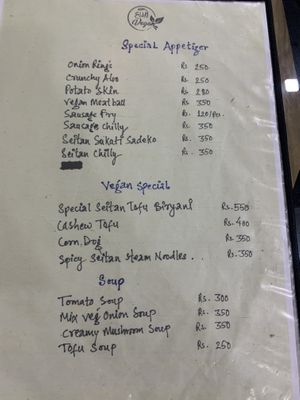 Vegan
Special Appetizer
Onion Rings Rs. 250
Crunchy Aloo Rs. 250
Potato Skin Rs. 280
Vegan Meatball Rs. 350
Sausage Fry Rs. 120/Pcs.
Sausage Chilly Rs. 350
Seitan Sukuti Sadeko Rs. 350
Seitan Chilly Rs. 350
Vegan Special
Special Seitan Tofu Biryani Rs. 550
Cashew Tofu Rs. 400
Corn Dog Rs. 350
Spicy Seitan Steam Noodles . . Rs. 350
Soup
Tomato Soup Rs. 300
Mix Veg Onion Soup Rs. 350
Creamy Mushroom Soup Rs. 350
Tofu Soup Rs. 250